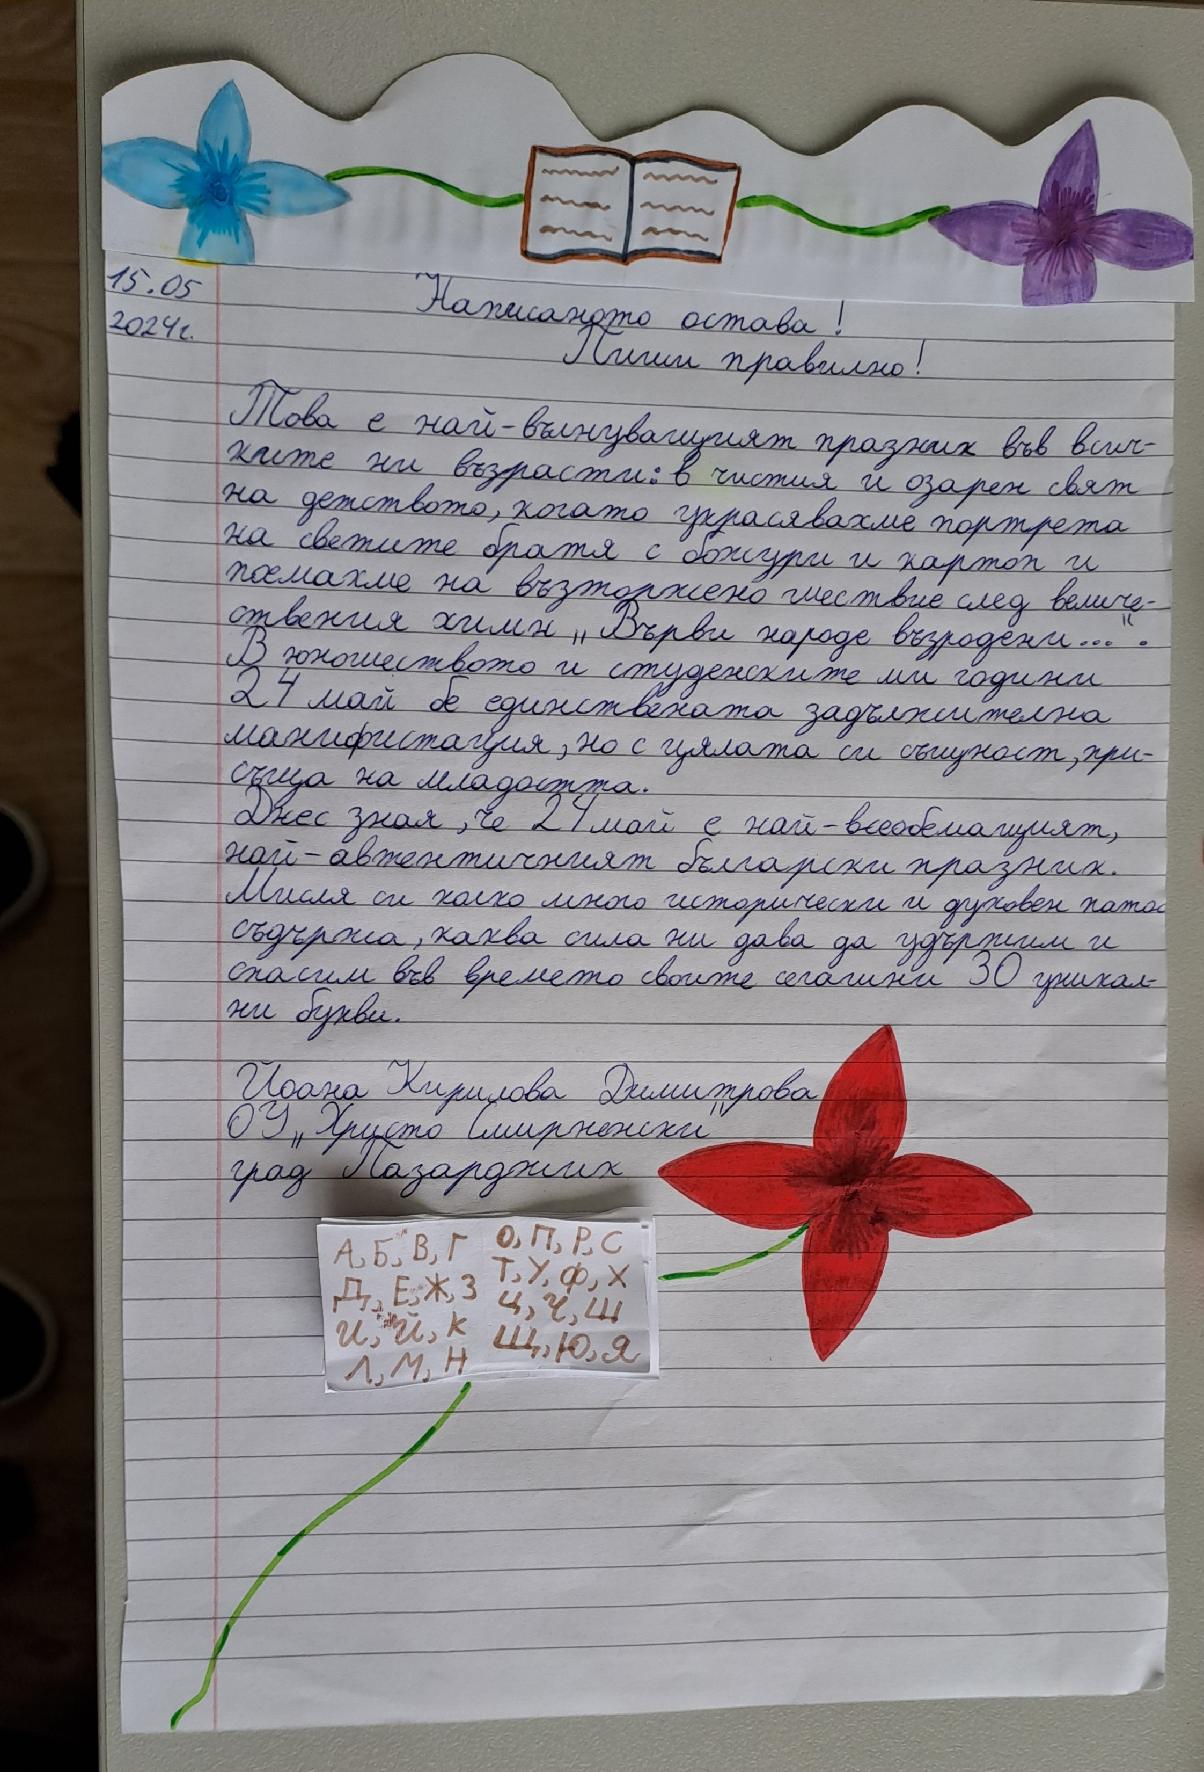 15.05
2024г.
Написаното остава!
Пиши правилно!
Това е най-вълнуващият празник във всич-
ките ни възрасти: в чистия и озарен свят
на детството, когато украсявахме портрета
на светите братя с божури и картон и
поемахме на възторжено шествие след величе-
ствения химн „Върви народе възродени...".
В юношеството и студенските ми години
24 май бе единствената задължителна
манифистация, но с цялата си същност, при-
съща на младостта.
Днес зная, че 24 май е най-всеобемащият,
най-автентичният български празник.
Мисля си колко много исторически и духовен патос
съдържа, каква сила ни дава да удържим и
спасим във времето своите сегашни 30 уникал-
ни букви.
Йоана Кирилова Димитрова
ОУ „Христо Смирненски"
град Пазарджик
А, Б, В, Г
Д, Е, Ж, З
И, Й, К
Л, М, Н
О, П, Р, С
Т, У, Ф, Х
Ц, Ч, Ш
Щ, Ю, Я